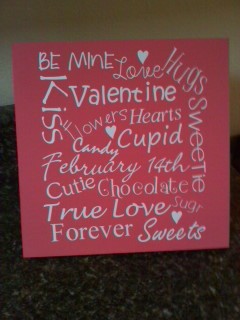 BE MINE
Love
Hugs
Kiss
Valentine
Sweetie
Flowers Hearts
Candy Cupid
February 14th
Cutie Chocolate
True Love Sugr
Forever Sweets